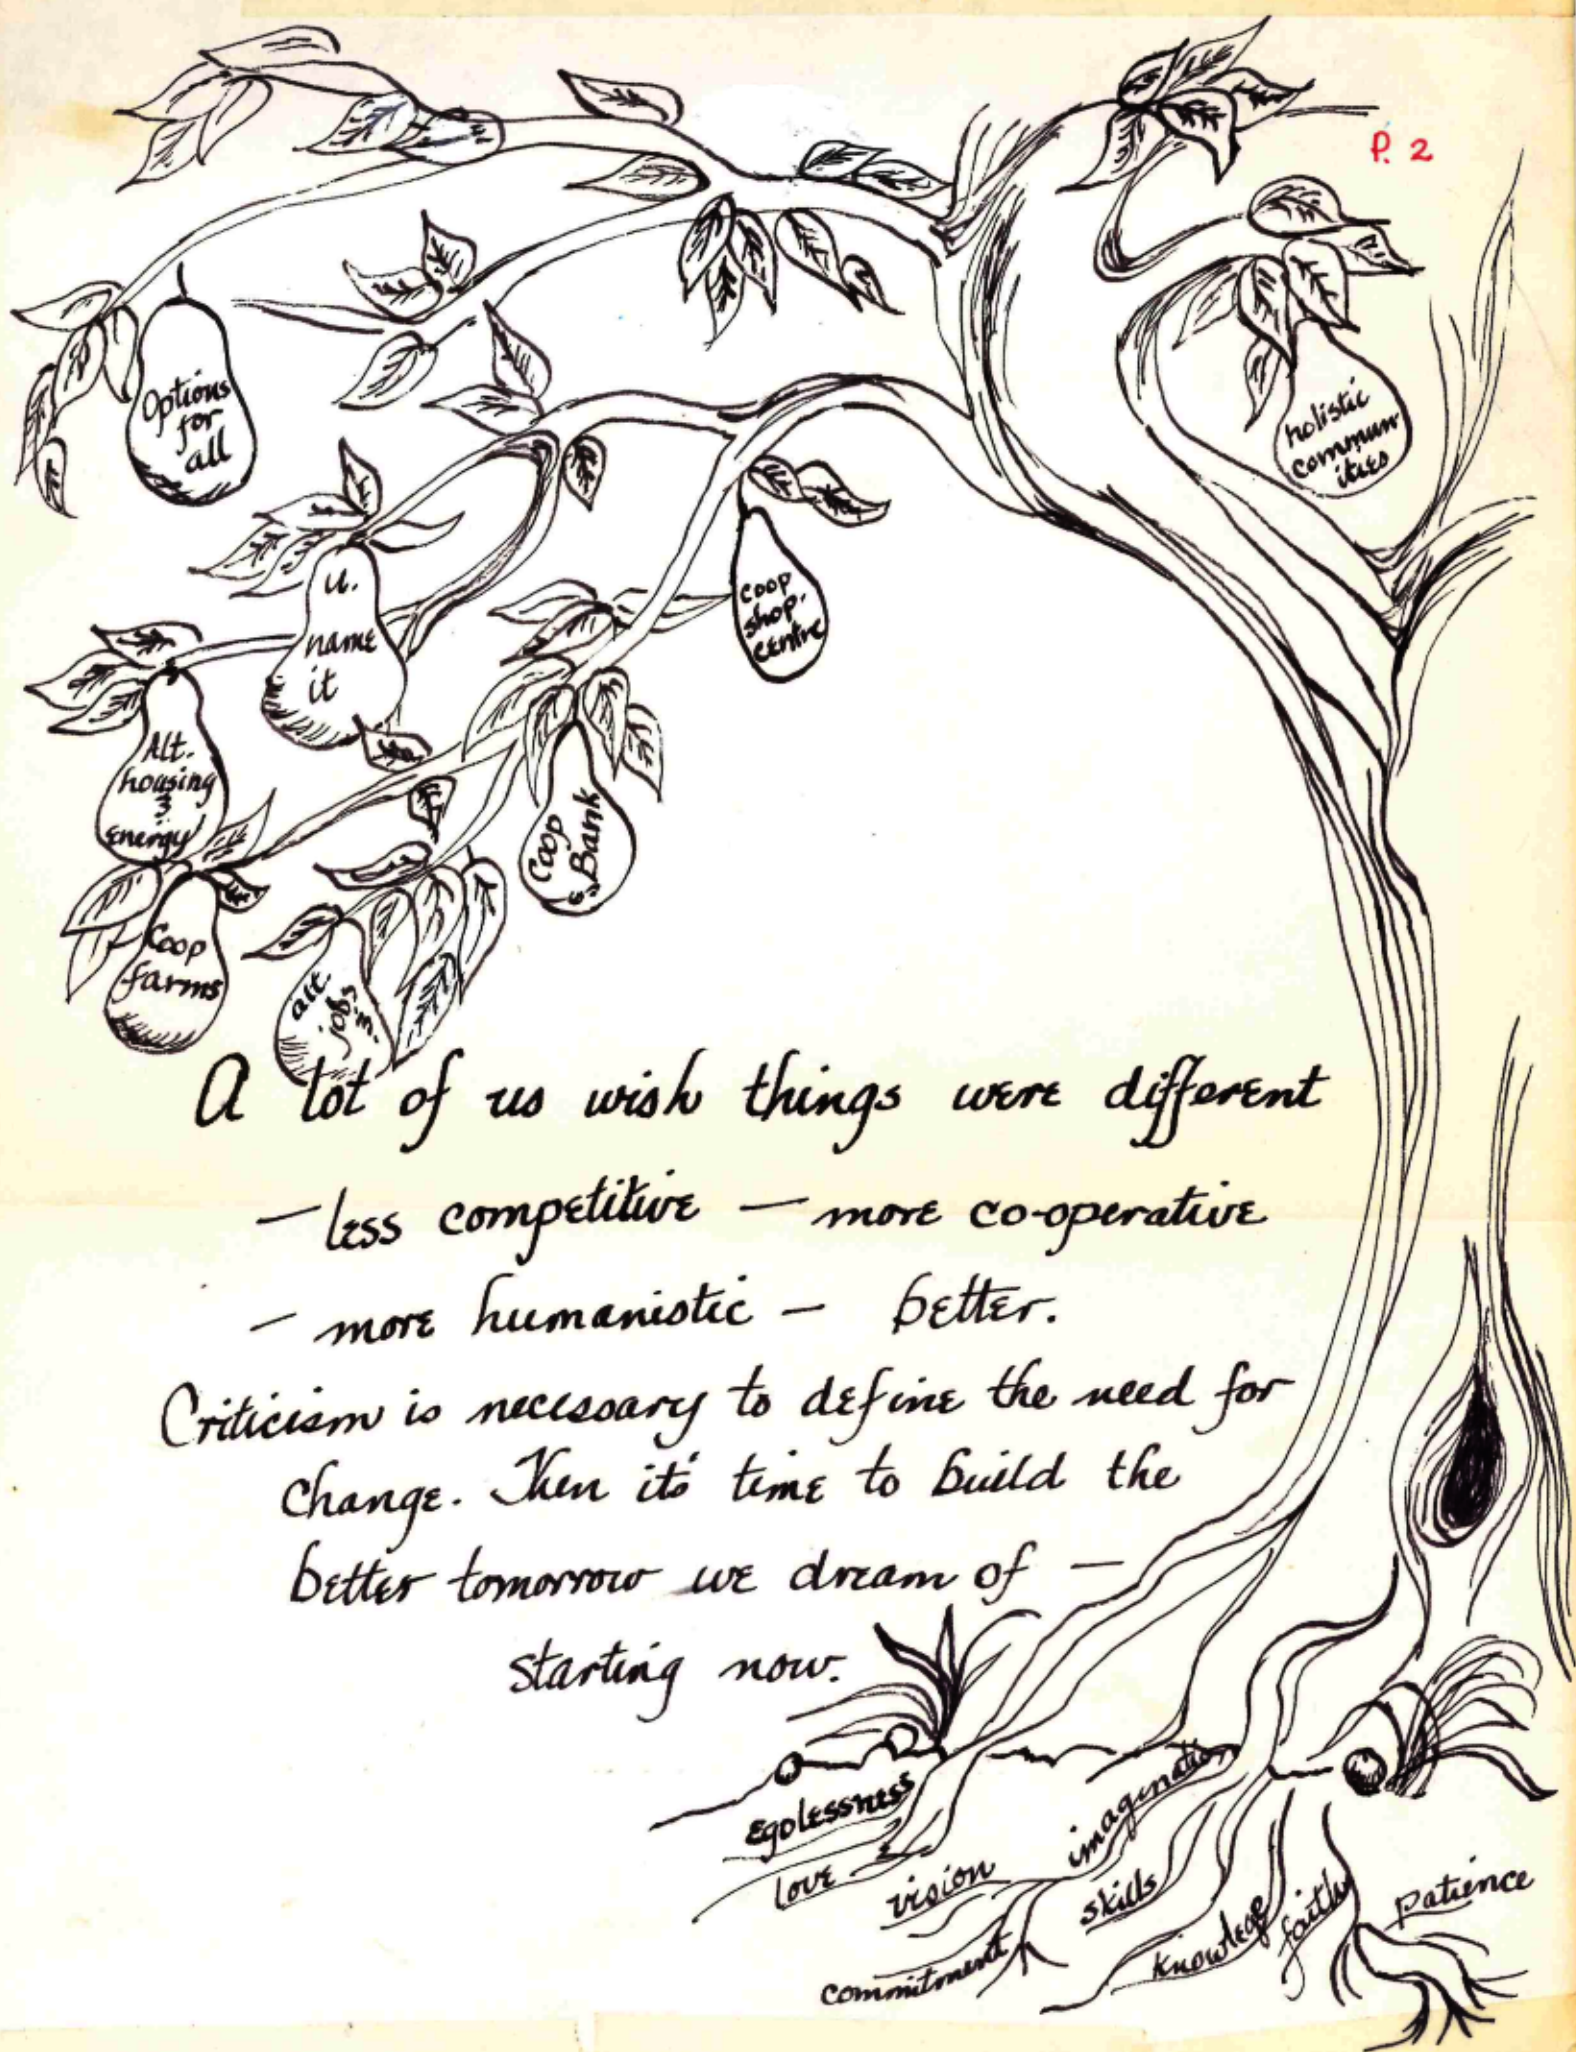 P. 2
Options
for
all
holistic
commun
ities
u.
name
it
coop
shop.
centre
Alt.
housing
&
energy
Coop
Bank
Coop
farms
alt.
jobs
A lot of us wish things were different
— less competitive — more co-operative
— more humanistic — better.
Criticism is necessary to define the need for
change. Then it's time to build the
better tomorrow we dream of —
starting now.
egolessness
love
vision
imagination
skills
commitment
knowlege
faith
patience